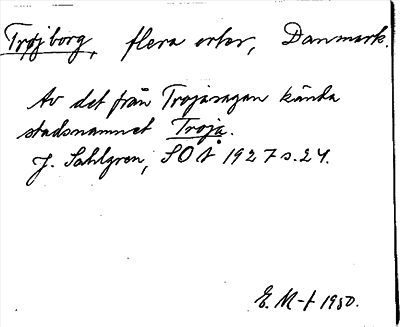 Trøjborg, flera orter, Danmark.
Av det från Trojasagan kända
stadsnamnet Troja.
J. Sahlgren, SOÅ 1927 s. 24.
E. M-t 1980.